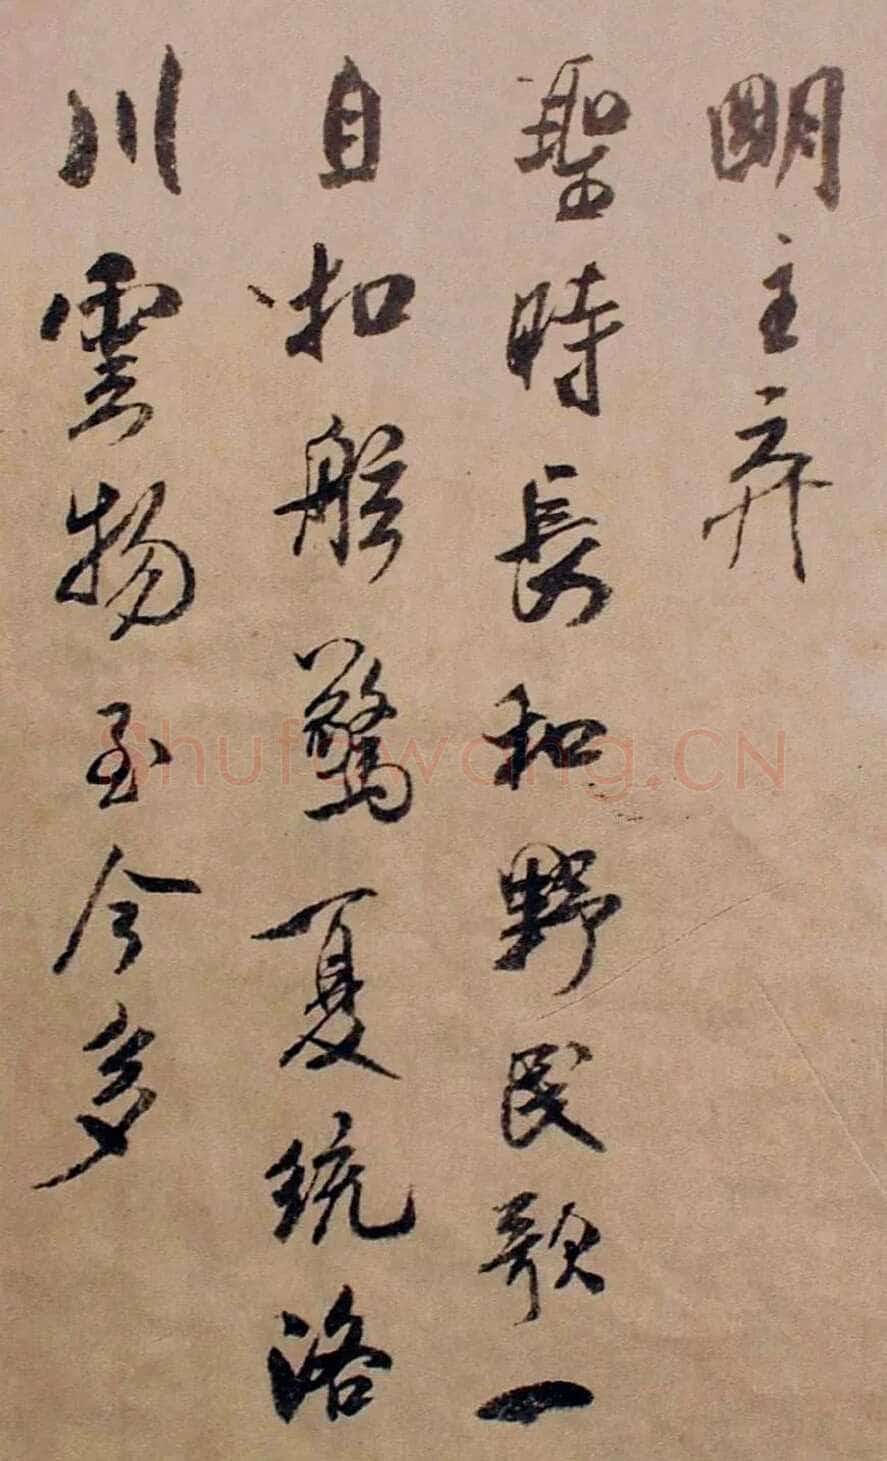 明主弃
聖時長和野民歌一
自扣舷驚夏統洛
川雲物至今多
Shufawang.CN